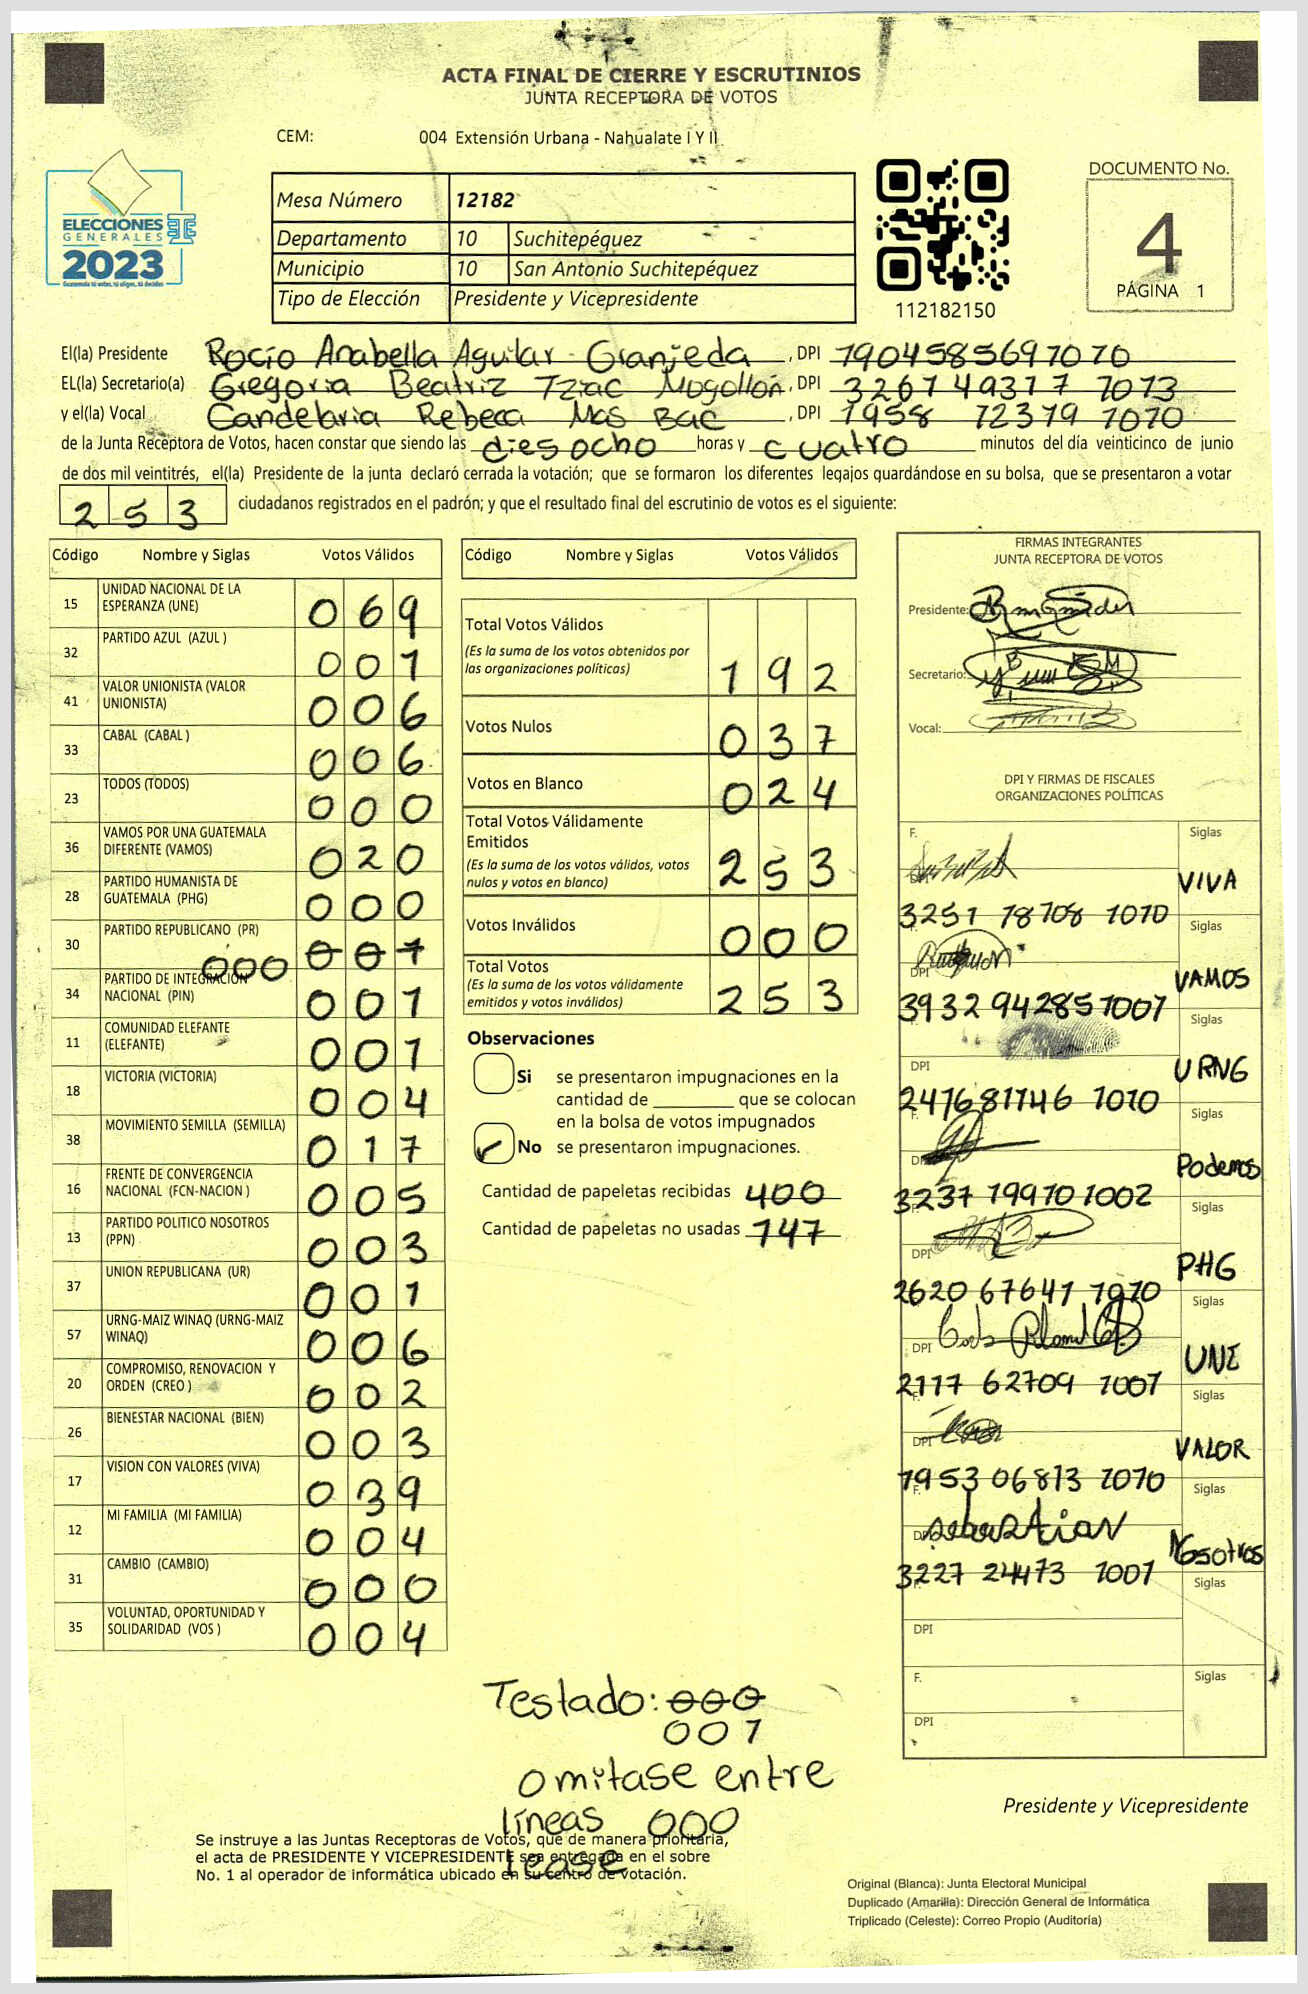 ACTA FINAL DE CIERRE Y ESCRUTINIOS
JUNTA RECEPTORA DE VOTOS
CEM: 004 Extensión Urbana - Nahualate I Y II
ELECCIONES
GENERALES
2023
Guatemala tú votas, tú eliges, tú decides
Mesa Número 12182
Departamento 10 Suchitepéquez
Municipio 10 San Antonio Suchitepéquez
Tipo de Elección Presidente y Vicepresidente
112182150
DOCUMENTO No.
4
PÁGINA 1
El(la) Presidente Rocío Anabella Aguilar Granjeda, DPI 1904585697070
EL(la) Secretario(a) Gregoria Beatriz Tziac Mogollón, DPI 3267 49317 1013
y el(la) Vocal Candelaria Rebeca Mas Bac, DPI 1958 72379 1010
de la Junta Receptora de Votos, hacen constar que siendo las diesocho horas y cuatro minutos del día veinticinco de junio
de dos mil veintitrés, el(la) Presidente de la junta declaró cerrada la votación; que se formaron los diferentes legajos guardándose en su bolsa, que se presentaron a votar
253 ciudadanos registrados en el padrón; y que el resultado final del escrutinio de votos es el siguiente:
Código Nombre y Siglas Votos Válidos
15 UNIDAD NACIONAL DE LA ESPERANZA (UNE) 069
32 PARTIDO AZUL (AZUL ) 001
41 VALOR UNIONISTA (VALOR UNIONISTA) 006
33 CABAL (CABAL ) 006
23 TODOS (TODOS) 000
36 VAMOS POR UNA GUATEMALA DIFERENTE (VAMOS) 020
28 PARTIDO HUMANISTA DE GUATEMALA (PHG) 000
30 PARTIDO REPUBLICANO (PR) 007
000
34 PARTIDO DE INTEGRACION NACIONAL (PIN) 001
11 COMUNIDAD ELEFANTE (ELEFANTE) 001
18 VICTORIA (VICTORIA) 004
38 MOVIMIENTO SEMILLA (SEMILLA) 017
16 FRENTE DE CONVERGENCIA NACIONAL (FCN-NACION ) 005
13 PARTIDO POLITICO NOSOTROS (PPN) 003
37 UNION REPUBLICANA (UR) 001
57 URNG-MAIZ WINAQ (URNG-MAIZ WINAQ) 006
20 COMPROMISO, RENOVACION Y ORDEN (CREO ) 002
26 BIENESTAR NACIONAL (BIEN) 003
17 VISION CON VALORES (VIVA) 039
12 MI FAMILIA (MI FAMILIA) 004
31 CAMBIO (CAMBIO) 000
35 VOLUNTAD, OPORTUNIDAD Y SOLIDARIDAD (VOS ) 004
Código Nombre y Siglas Votos Válidos
Total Votos Válidos 192
(Es la suma de los votos obtenidos por
las organizaciones políticas)
Votos Nulos 037
Votos en Blanco 024
Total Votos Válidamente
Emitidos 253
(Es la suma de los votos válidos, votos
nulos y votos en blanco)
Votos Inválidos 000
Total Votos 253
(Es la suma de los votos válidamente
emitidos y votos inválidos)
Observaciones
Si se presentaron impugnaciones en la
cantidad de ________ que se colocan
en la bolsa de votos impugnados
No se presentaron impugnaciones.
Cantidad de papeletas recibidas 400
Cantidad de papeletas no usadas 147
FIRMAS INTEGRANTES
JUNTA RECEPTORA DE VOTOS
Presidente:
Secretario:
Vocal:
DPI Y FIRMAS DE FISCALES
ORGANIZACIONES POLÍTICAS
F. Siglas
VIVA
3251 78708 1010
Siglas
DPI VAMOS
3932 94285 1007
Siglas
DPI URNG
247681746 1010
Siglas
Podemos
3237 19970 1002
Siglas
DPI PHG
2620 67641 1010
Siglas
DPI UNE
2117 62709 1007
Siglas
DPI VALOR
1953 06813 1010
Siglas
sebastian Nosotros
3227 24473 1007
Siglas
DPI
F. Siglas
DPI
Testado: 000
007
omitase entre
líneas 000
lease
Presidente y Vicepresidente
Se instruye a las Juntas Receptoras de Votos, que de manera prioritaria,
el acta de PRESIDENTE Y VICEPRESIDENTE sea entregada en el sobre
No. 1 al operador de informática ubicado en su centro de votación.
Original (Blanca): Junta Electoral Municipal
Duplicado (Amarilla): Dirección General de Informática
Triplicado (Celeste): Correo Propio (Auditoría)